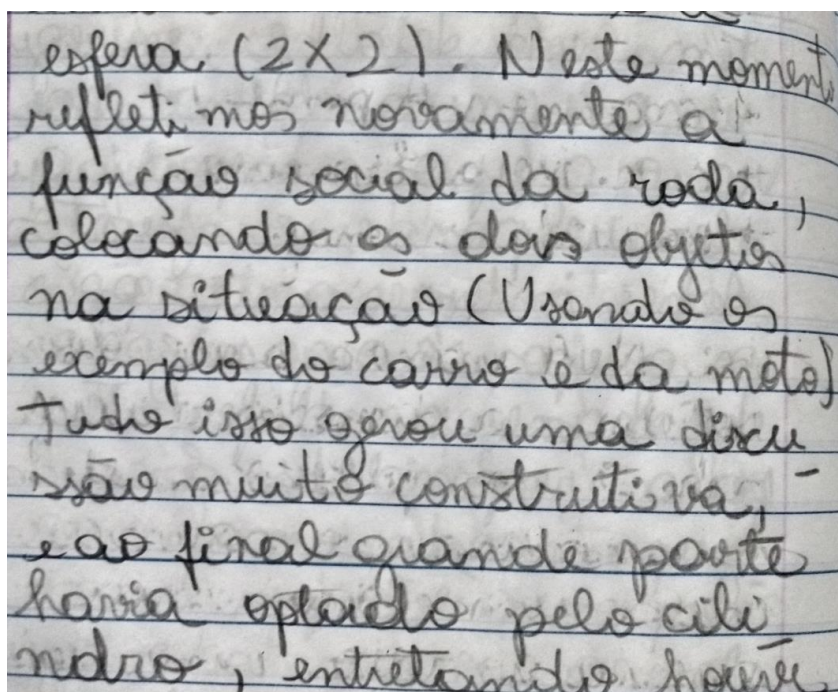 esfera (2x2). Neste moment
refletimos novamente a
função social da roda,
colocando os dois objetos
na situação (Usando os
exemplo do carro e da moto)
Tudo isso gerou uma discu
ssão muito construtiva,
e ao final grande parte
havia optado pelo cili
ndro, entretando houve